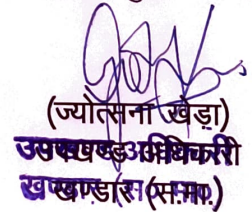 (ज्योत्सना खेड़ा)
उपखण्ड अधिकारी
खण्डार (स.मा.)